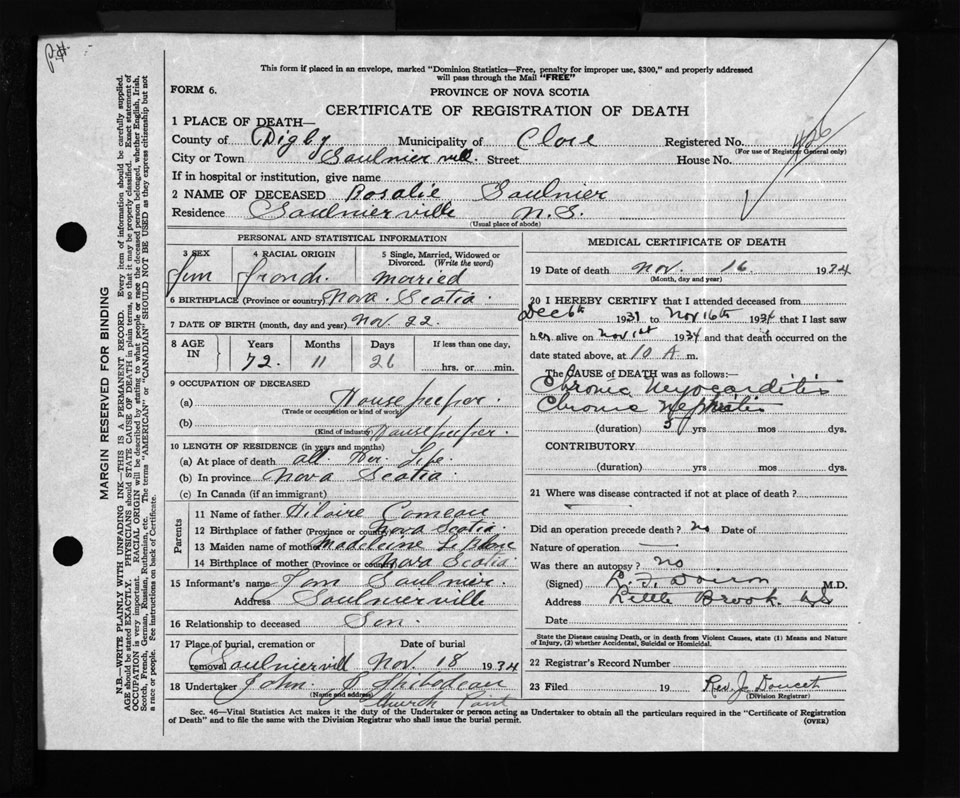 This form if placed in an envelope, marked "Dominion Statistics—Free, penalty for improper use, $300," and properly addressed
will pass through the Mail "FREE"
FORM 6.
PROVINCE OF NOVA SCOTIA
CERTIFICATE OF REGISTRATION OF DEATH
1 PLACE OF DEATH—
County of Digby Municipality of Clare Registered No.
(For use of Registrar General only)
City or Town Saulnierville Street House No.
If in hospital or institution, give name
2 NAME OF DECEASED Rosalie Saulnier
Residence Saulnierville N.S.
(Usual place of abode)
PERSONAL AND STATISTICAL INFORMATION
3 SEX 4 RACIAL ORIGIN 5 Single, Married, Widowed or
Divorced. (Write the word)
Fem French Married
6 BIRTHPLACE (Province or country) Nova Scotia
7 DATE OF BIRTH (month, day and year) Nov. 22
8 AGE IN Years Months Days If less than one day,
72 11 26 hrs. or min.
9 OCCUPATION OF DECEASED
(a) Housekeeper.
(Trade or occupation or kind of work)
(b) Housekeeper.
(Kind of industry)
10 LENGTH OF RESIDENCE (in years and months)
(a) At place of death all Her Life.
(b) In province Nova Scotia
(c) In Canada (if an immigrant)
Parents
11 Name of father Hilaire Comeau
12 Birthplace of father (Province or country) Nova Scotia.
13 Maiden name of mother Madeleine
14 Birthplace of mother (Province or country) Nova Scotia
15 Informant's name Tom Saulnier.
Address Saulnierville
16 Relationship to deceased Son.
17 Place of burial, cremation or Date of burial
removal Saulnierville Nov. 18 1934
18 Undertaker John Thibodeau
(Name and address) Church Point
MEDICAL CERTIFICATE OF DEATH
19 Date of death Nov. 16 1934
(Month, day and year)
20 I HEREBY CERTIFY that I attended deceased from
Dec 6th 1931 to Nov 16th 1934 that I last saw
her alive on Nov 1st 1934 and that death occurred on the
date stated above, at 10 A m.
The CAUSE OF DEATH was as follows:—
Chronic Myocarditis
Chronic Nephritis
(duration) 3 yrs mos dys.
CONTRIBUTORY
(duration) yrs mos dys.
21 Where was disease contracted if not at place of death?
Did an operation precede death? no Date of
Nature of operation —
Was there an autopsy? no
(Signed) M.D.
Address Little Brook NS
Date
State the Disease causing Death, or in death from Violent Causes, state (1) Means and Nature
of Injury, (2) whether Accidental, Suicidal or Homicidal.
22 Registrar's Record Number
23 Filed 19 Rev. J. Doucet
(Division Registrar)
Sec. 46—Vital Statistics Act makes it the duty of the Undertaker or person acting as Undertaker to obtain all the particulars required in the "Certificate of Registration
of Death" and to file the same with the Division Registrar who shall issue the burial permit.
(OVER)
MARGIN RESERVED FOR BINDING
N.B.—WRITE PLAINLY WITH UNFADING INK—THIS IS A PERMANENT RECORD. Every item of information should be carefully supplied.
AGE should be stated EXACTLY. PHYSICIANS should STATE CAUSE OF DEATH in plain terms, so that it may be properly classified. Exact statement of
OCCUPATION is very important. RACIAL ORIGIN will be described by stating to what people or race the deceased person belonged, whether English, Irish,
Scotch, French, German, Russian, Ruthenian, etc. The terms "AMERICAN" or "CANADIAN" SHOULD NOT BE USED as they express citizenship but not
a race or people. See instructions on back of Certificate.